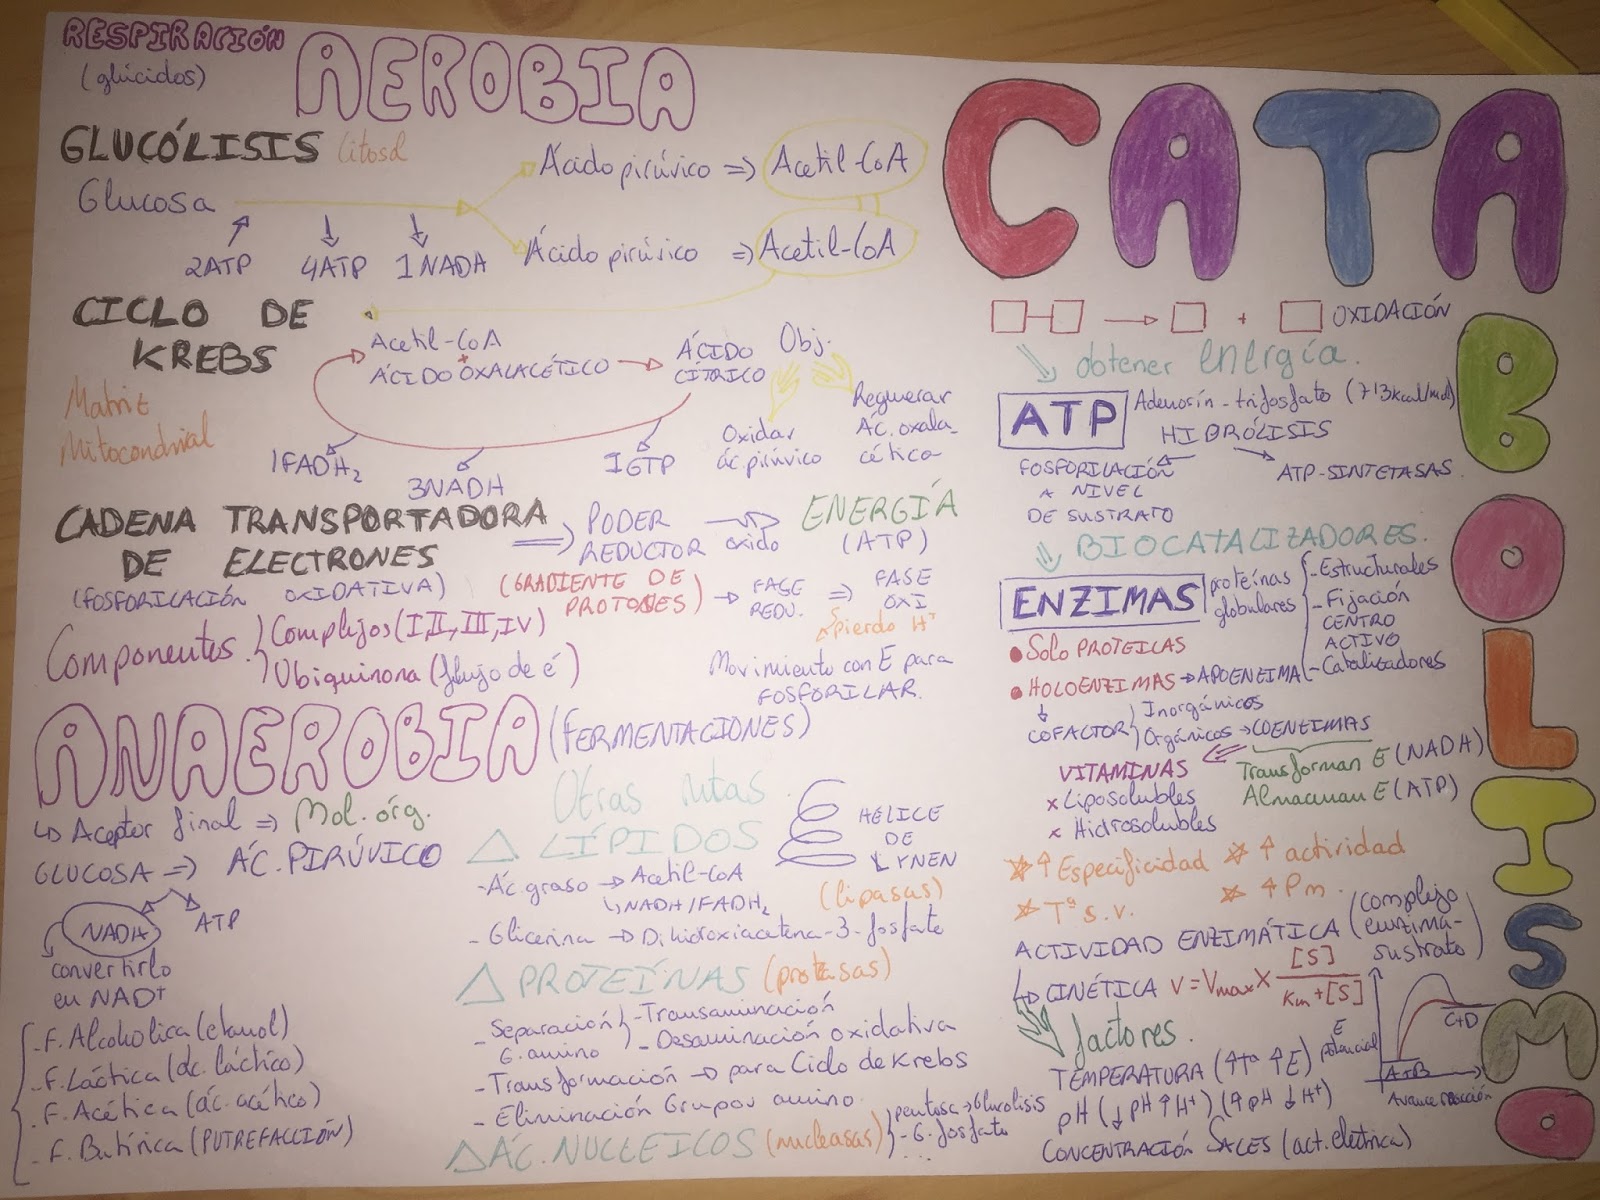 RESPIRACIÓN
(glúcidos)
AEROBIA
GLUCÓLISIS Citosol
Glucosa
2ATP 4ATP 1NADA
Ácido pirúvico => Acetil-CoA
Ácido pirúvico => Acetil-CoA
CICLO DE
KREBS
Matriz
Mitocondrial
Acetil-CoA
+
ÁCIDO OXALACÉTICO → ÁCIDO
CÍTRICO
1FADH2
3NADH
1GTP
Obj.
Oxidar
ác. pirúvico
Regenerar
Ác. oxala-
cético
CADENA TRANSPORTADORA
DE ELECTRONES
(FOSFORILACIÓN OXIDATIVA)
=> PODER
REDUCTOR
oxido
ENERGÍA
(ATP)
(GRADIENTE DE
PROTONES)
→ FASE
REDU.
=> FASE
OXI
pierdo H+
Componentes
Complejos (I, II, III, IV)
Ubiquinona (flujo de é)
Movimiento con E para
FOSFORILAR.
ANAEROBIA (FERMENTACIONES)
↳ Aceptor final => Mol. órg.
GLUCOSA => ÁC. PIRÚVICO
NADH
ATP
convertirlo
en NAD+
- F. Alcoholica (etanol)
- F. Láctica (ác. láctico)
- F. Acética (ác. acético)
- F. Butírica (PUTREFACCIÓN)
Otras rutas
△ LÍPIDOS
HELICE
DE
LYNEN
(lipasas)
- Ác. graso → Acetil-CoA
↳ NADH/FADH2
- Glicerina → Dihidroxiacetona-3-fosfato
△ PROTEÍNAS (proteasas)
- Separación
G. amino
- Transaminación
- Desaminación oxidativa
- Transformación → para Ciclo de Krebs
- Eliminación Grupos amino.
△ ÁC. NUCLEICOS (nucleasas)
pentosa → Glucolisis
- G. fosfato
...
CATABOLISMO
→ + OXIDACIÓN
obtener energía.
ATP
Adenosín-trifosfato (7'3kcal/mol)
HIDRÓLISIS
FOSFORILACIÓN
A NIVEL
DE SUSTRATO
ATP-SINTETASAS.
BIOCATALIZADORES.
ENZIMAS
proteínas
globulares
- Estructurales
- Fijación
CENTRO
ACTIVO
- Catalizadores
• SOLO PROTEICAS
• HOLOENZIMAS → APOENZIMA
COFACTOR
Inorgánicos
Orgánicos → COENZIMAS
VITAMINAS
x Liposolubles
x Hidrosolubles
Transforman E (NADH)
Almacenan E (ATP)
↑ Especificidad
↑ actividad
Tª s.v.
↑ Pm.
ACTIVIDAD ENZIMÁTICA
(complejo
enzima-
sustrato)
↳ CINÉTICA V = Vmax x [S] / Km + [S]
factores.
TEMPERATURA (↑Tª ↑E)
pH (↓pH ↑H+) (↑pH ↓H+)
CONCENTRACIÓN SALES (act. eléctrica)
E
potencial
A+B
C+D
Avance reacción